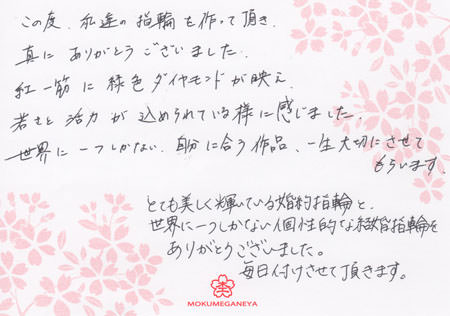 この度、私達の指輪を作って頂き、
真にありがとうございました。
紅一筋に緑色ダイヤモンドが映え、
若さと活力が込められている様に感じました。
世界に一つしかない、自分に合う作品、一生大切にさせて
もらいます。
とても美しく輝いている婚約指輪と、
世界に一つしかない個性的な結婚指輪を
ありがとうございました。
毎日付けさせて頂きます。
MOKUMEGANEYA